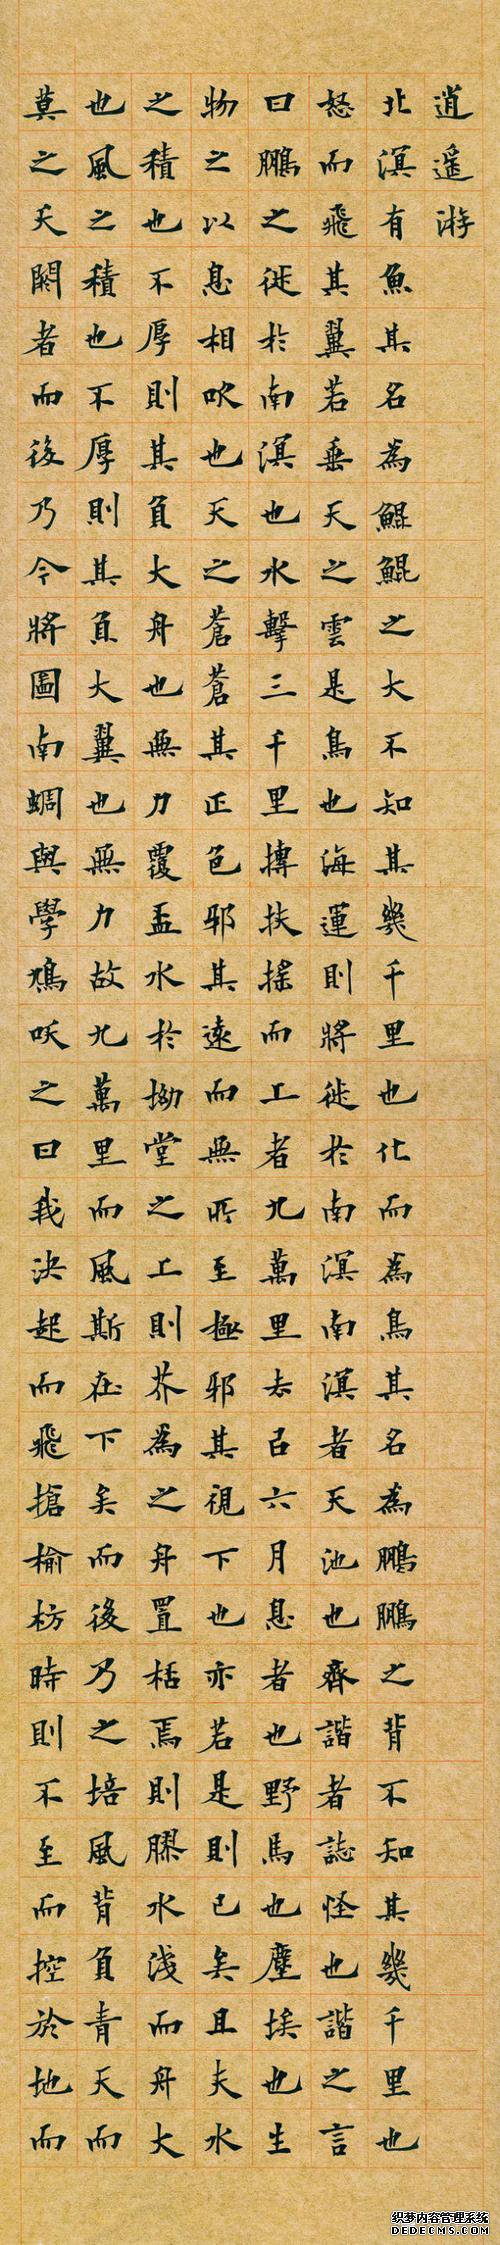 逍遙游
北溟有魚其名為鯤鯤之大不知其幾千里也化而為鳥其名為鵬鵬之背不知其幾千里也
怒而飛其翼若垂天之雲是鳥也海運則將徙於南溟南溟者天池也齊諧者誌怪也諧之言
曰鵬之徙於南溟也水擊三千里摶扶搖而上者九萬里去㠯六月息者也野馬也塵埃也生
物之以息相吹也天之蒼蒼其正色邪其遠而無所至極邪其視下也亦若是則已矣且夫水
之積也不厚則其負大舟也無力覆盃水於坳堂之上則芥為之舟置桮焉則膠水淺而舟大
也風之積也不厚則其負大翼也無力故九萬里而風斯在下矣而後乃之培風背負青天而
莫之夭閼者而後乃今將圖南蜩與學鳩咲之曰我決起而飛搶榆枋時則不至而控於地而
织梦内容管理系统
DEDECMS.COM